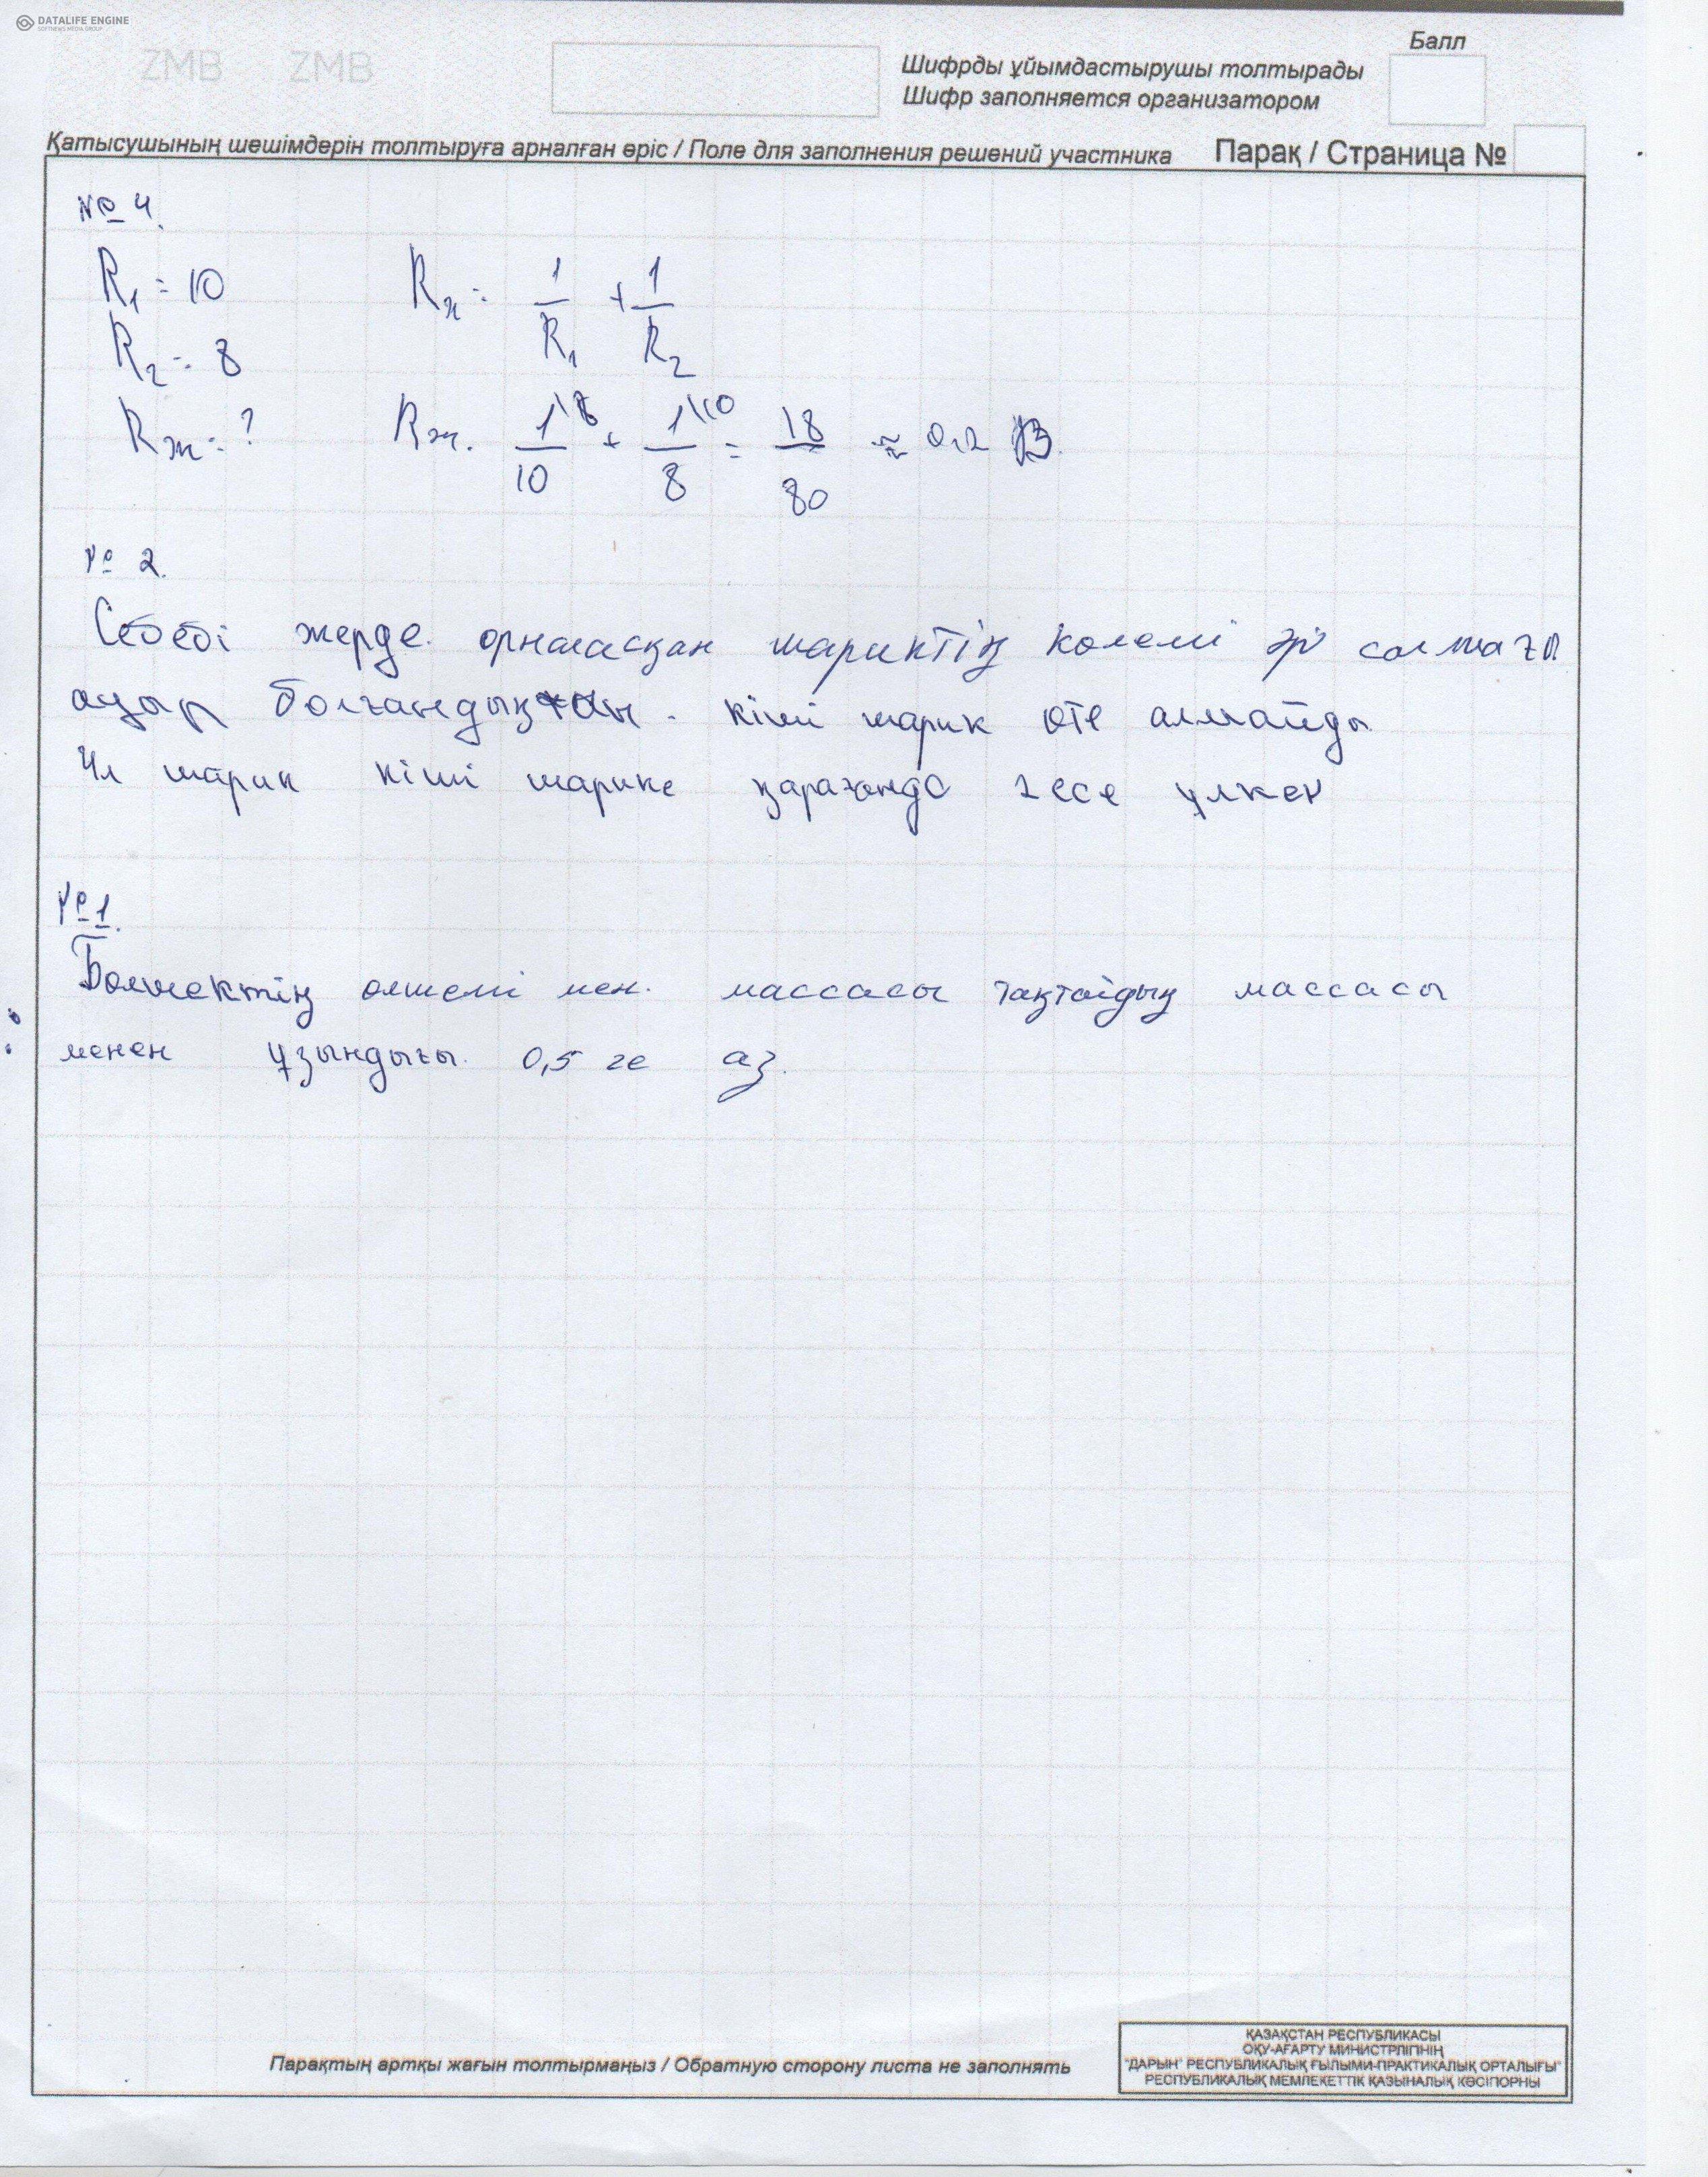 DATALIFE ENGINE
SOFTNEWS MEDIA GROUP
ZMB ZMB
Балл
Шифрды ұйымдастырушы толтырады
Шифр заполняется организатором
Қатысушының шешімдерін толтыруға арналған өріс / Поле для заполнения решений участника Парақ / Страница №
№ 4.
R₁ = 10
R₂ = 8
Rж = ?
Rж = 1/R₁ + 1/R₂
Rж. 1\8/10 + 1\10/8 = 18/80 ≈ 0,2 В.
№ 2.
Себебі жерде орналасқан шариктің көлемі әрі салмағы
ауыр болғандықтан. кіші шарик өте алмайды
шарик кіші шарике қарағанда 2 есе үлкен
№ 1.
Бөлшектің өлшемі мен. массасы тақтайдың массасы
менен ұзындығы. 0,5 ге аз.
Парақтың артқы жағын толтырмаңыз / Обратную сторону листа не заполнять
ҚАЗАҚСТАН РЕСПУБЛИКАСЫ
ОҚУ-АҒАРТУ МИНИСТРЛІГІНІҢ
"ДАРЫН" РЕСПУБЛИКАЛЫҚ ҒЫЛЫМИ-ПРАКТИКАЛЫҚ ОРТАЛЫҒЫ"
РЕСПУБЛИКАЛЫҚ МЕМЛЕКЕТТІК ҚАЗЫНАЛЫҚ КӘСІПОРНЫ